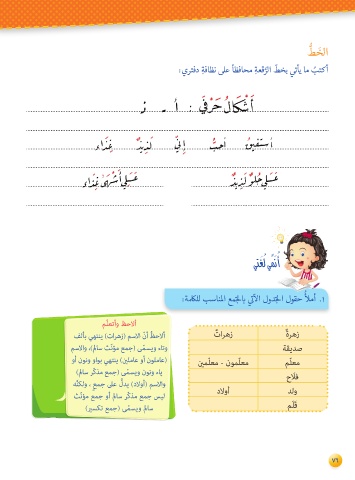 الخَطُّ
أكتبُ ما يأتي بخطِّ الرّقعةِ محافظاً على نظافةِ دفتري:
أَشْكَالُ حَرْفَيْ : اُ - ز
أستفيقُ أحبُّ إنّي لَذيذٌ غِذَاء
عَسَلي حُلوٌ لَذيذٌ
عَسَلي أَشْهَى غِذَاء
أُنَمِّي لُغَتي
١. أملأُ حقول الجدول الآتي بالجمعِ المناسب للكلمة:
زهرةٌ زهراتٌ
صديقة
معلّم معلّمون - معلّمين
فلّاح
ولد أولاد
قَلَم
ألاحظ وأتعلّم
ألاحظُ أنّ الاسم (زهرات) ينتهي بألف
وتاء ويسمّى (جمع مؤنّث سالم)، والاسم
(عاملون أو عاملين) ينتهي بواو ونون أو
ياء ونون ويسمّى (جمع مذكّر سالم)
والاسم (أولاد) يدلُّ على جمعٍ ، ولكنَّه
ليس جمع مذكّر سالم أو جمع مؤنّث
سالم ويسمّى (جمع تكسير)
٧٦